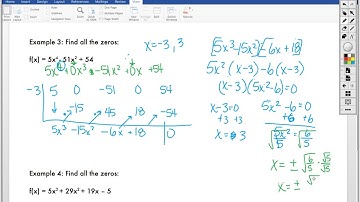 Example 3: Find all the zeros:
x=-3, 3
f(x) = 5x⁴- 51x² + 54
5x⁴+0x³-51x²+0x+54
-3 5 0 -51 0 54
↓ -15 45 18 -54
5x³ -15x² -6x +18 0
[5x³-15x²][-6x+18]
5x²(x-3)-6(x-3)
(x-3)(5x²-6)=0
x-3=0 5x²-6=0
+3 +3 +6 +6
x=3 √5x²/5 = √6/5
x=± √6/√5 · √5/√5
x=±
Example 4: Find all the zeros:
f(x) = 5x³ + 29x² + 19x – 5